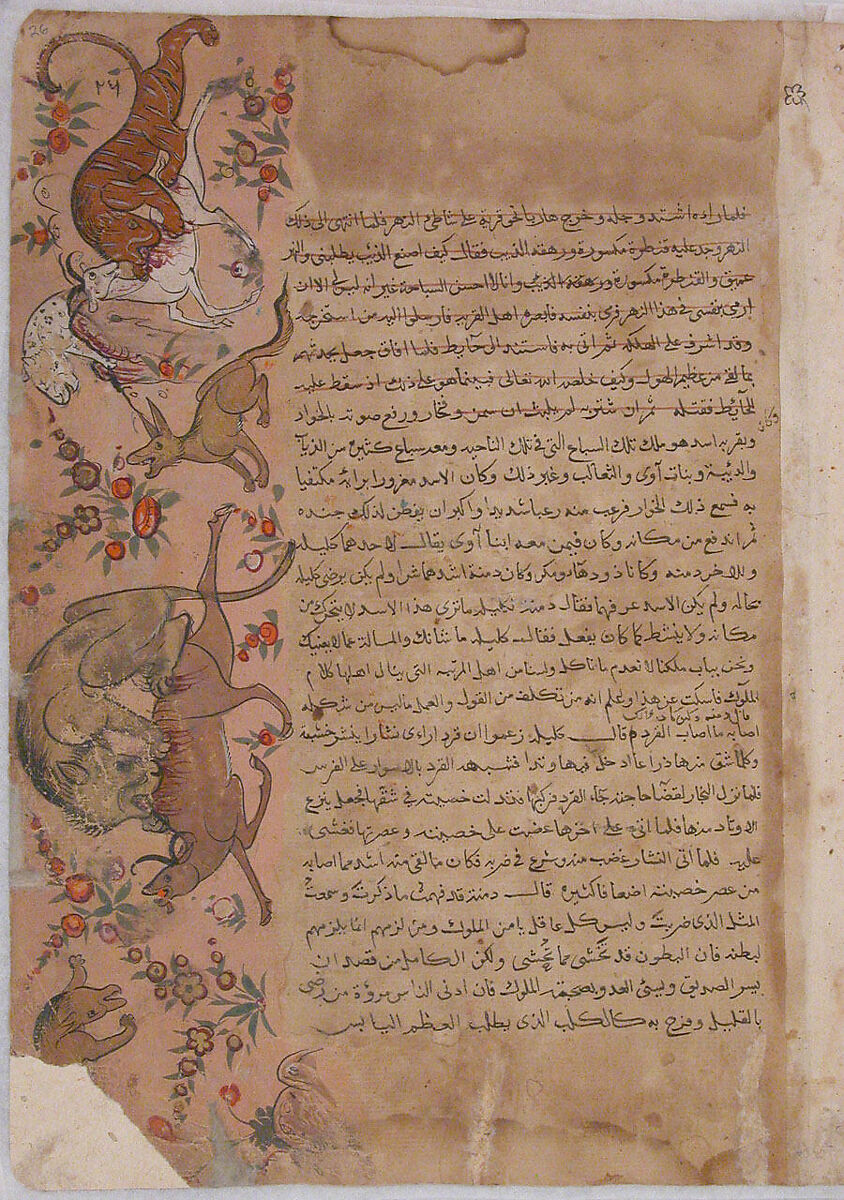 26
٢٦
فلما راءه اشتد وجله وخرج هاربا نحى قرية على شاطئ النهر فلما انتهى الى ذلك
النهر وجد عليه قنطرة مكسورة ورهقه الذيب فقال كيف اصنع الذيب يطلبني والنهر
عميق والقنطرة مكسورة ورهقنى الذيب وانا لا احسن السباحة غير انه ليس لى الا ان
ارمى بنفسى فى هذا النهر فرمى بنفسه فابصره اهل القرية فارسلوا اليه من استخرجه
وقد اشرف على الهلكه ثم اتى به فاستند الى حايط فلما افاق جعل يحدثهم
بما لقى من عظيم الهول وكيف خلصه الله تعالى فبينما هو على ذلك اذ سقط عليه
الحائط فقتله ثم ان شتربه لم يلبث ان سمن و فخار ورفع صوته بالخوار
وكان
وبقربه اسد هو ملك تلك السباع التى فى تلك الناحيه ومعه سباع كثيرة من الذياب
والدببة وبنات آوى والثعالب وغير ذلك وكان الاسد مغرورا برايه مكتفيا
به فسمع ذلك الخوار فرعب منه رعبا شديدا واكبر ان يفطن لذلك جنده
ثم اندفع من مكانه وكان فيمن معه ابنا آوى يقال لاحدهما كليله
وللاخر دمنه وكانا ذو دهاء ومكر وكان دمنة اشدهما شرا ولم يكن يرضى كليله
بحاله ولم يكن الاسد عرفهما فقال دمنه لكليله ما ترى هذا الاسد لا يتحرك من
مكانه ولا ينشط كما كان يفعل فقال كليله ما شانك والمسالة عما لا يعنيك
ونحن بباب ملكنا لا نعدم ما ناكل ولسنا من اهل المرتبه التى ينال اهلها كلام
الملوك فاسكت عن هذا واعلم انه من تكلف من القول والعمل ما ليس من شكله
قال دمنه وكيف كان ذلك
اصابه ما اصاب القرد قال كليله زعموا ان قردا راى نشارا ينشر خشبة
وكلما شق منها ذراعا ادخل فيها وتدا فتشبه القرد بالاسوار على الفرس
فلما نزل النجار لقضا حاجته جاء القرد فركبها فتدلت خصيته فى شقها فجعل ينزع
الاوتاد منها فلما اتى على اخرها عضت على خصيته وعصرتها فغشى
عليه فلما اتى النشار غضب منه وشرع فى ضربه فكان ما لقى منه اشد مما اصابه
من عصر خصيته اضعافا كثيرة قال دمنة قد فهمت ما ذكرت وسمعت
المثل الذى ضربت وليس كل عاقل يامن الملوك ومن لزمهم انما يلزمهم
لبطنه فان البطون قد تحشى مما تحشى ولكن الكامل من قصد ان
يسر الصديق ويسئ العدو بصحبة الملوك فان ادنى الناس مروة من رضى
بالقليل وفرح به كالكلب الذى يطلب العظم اليابس